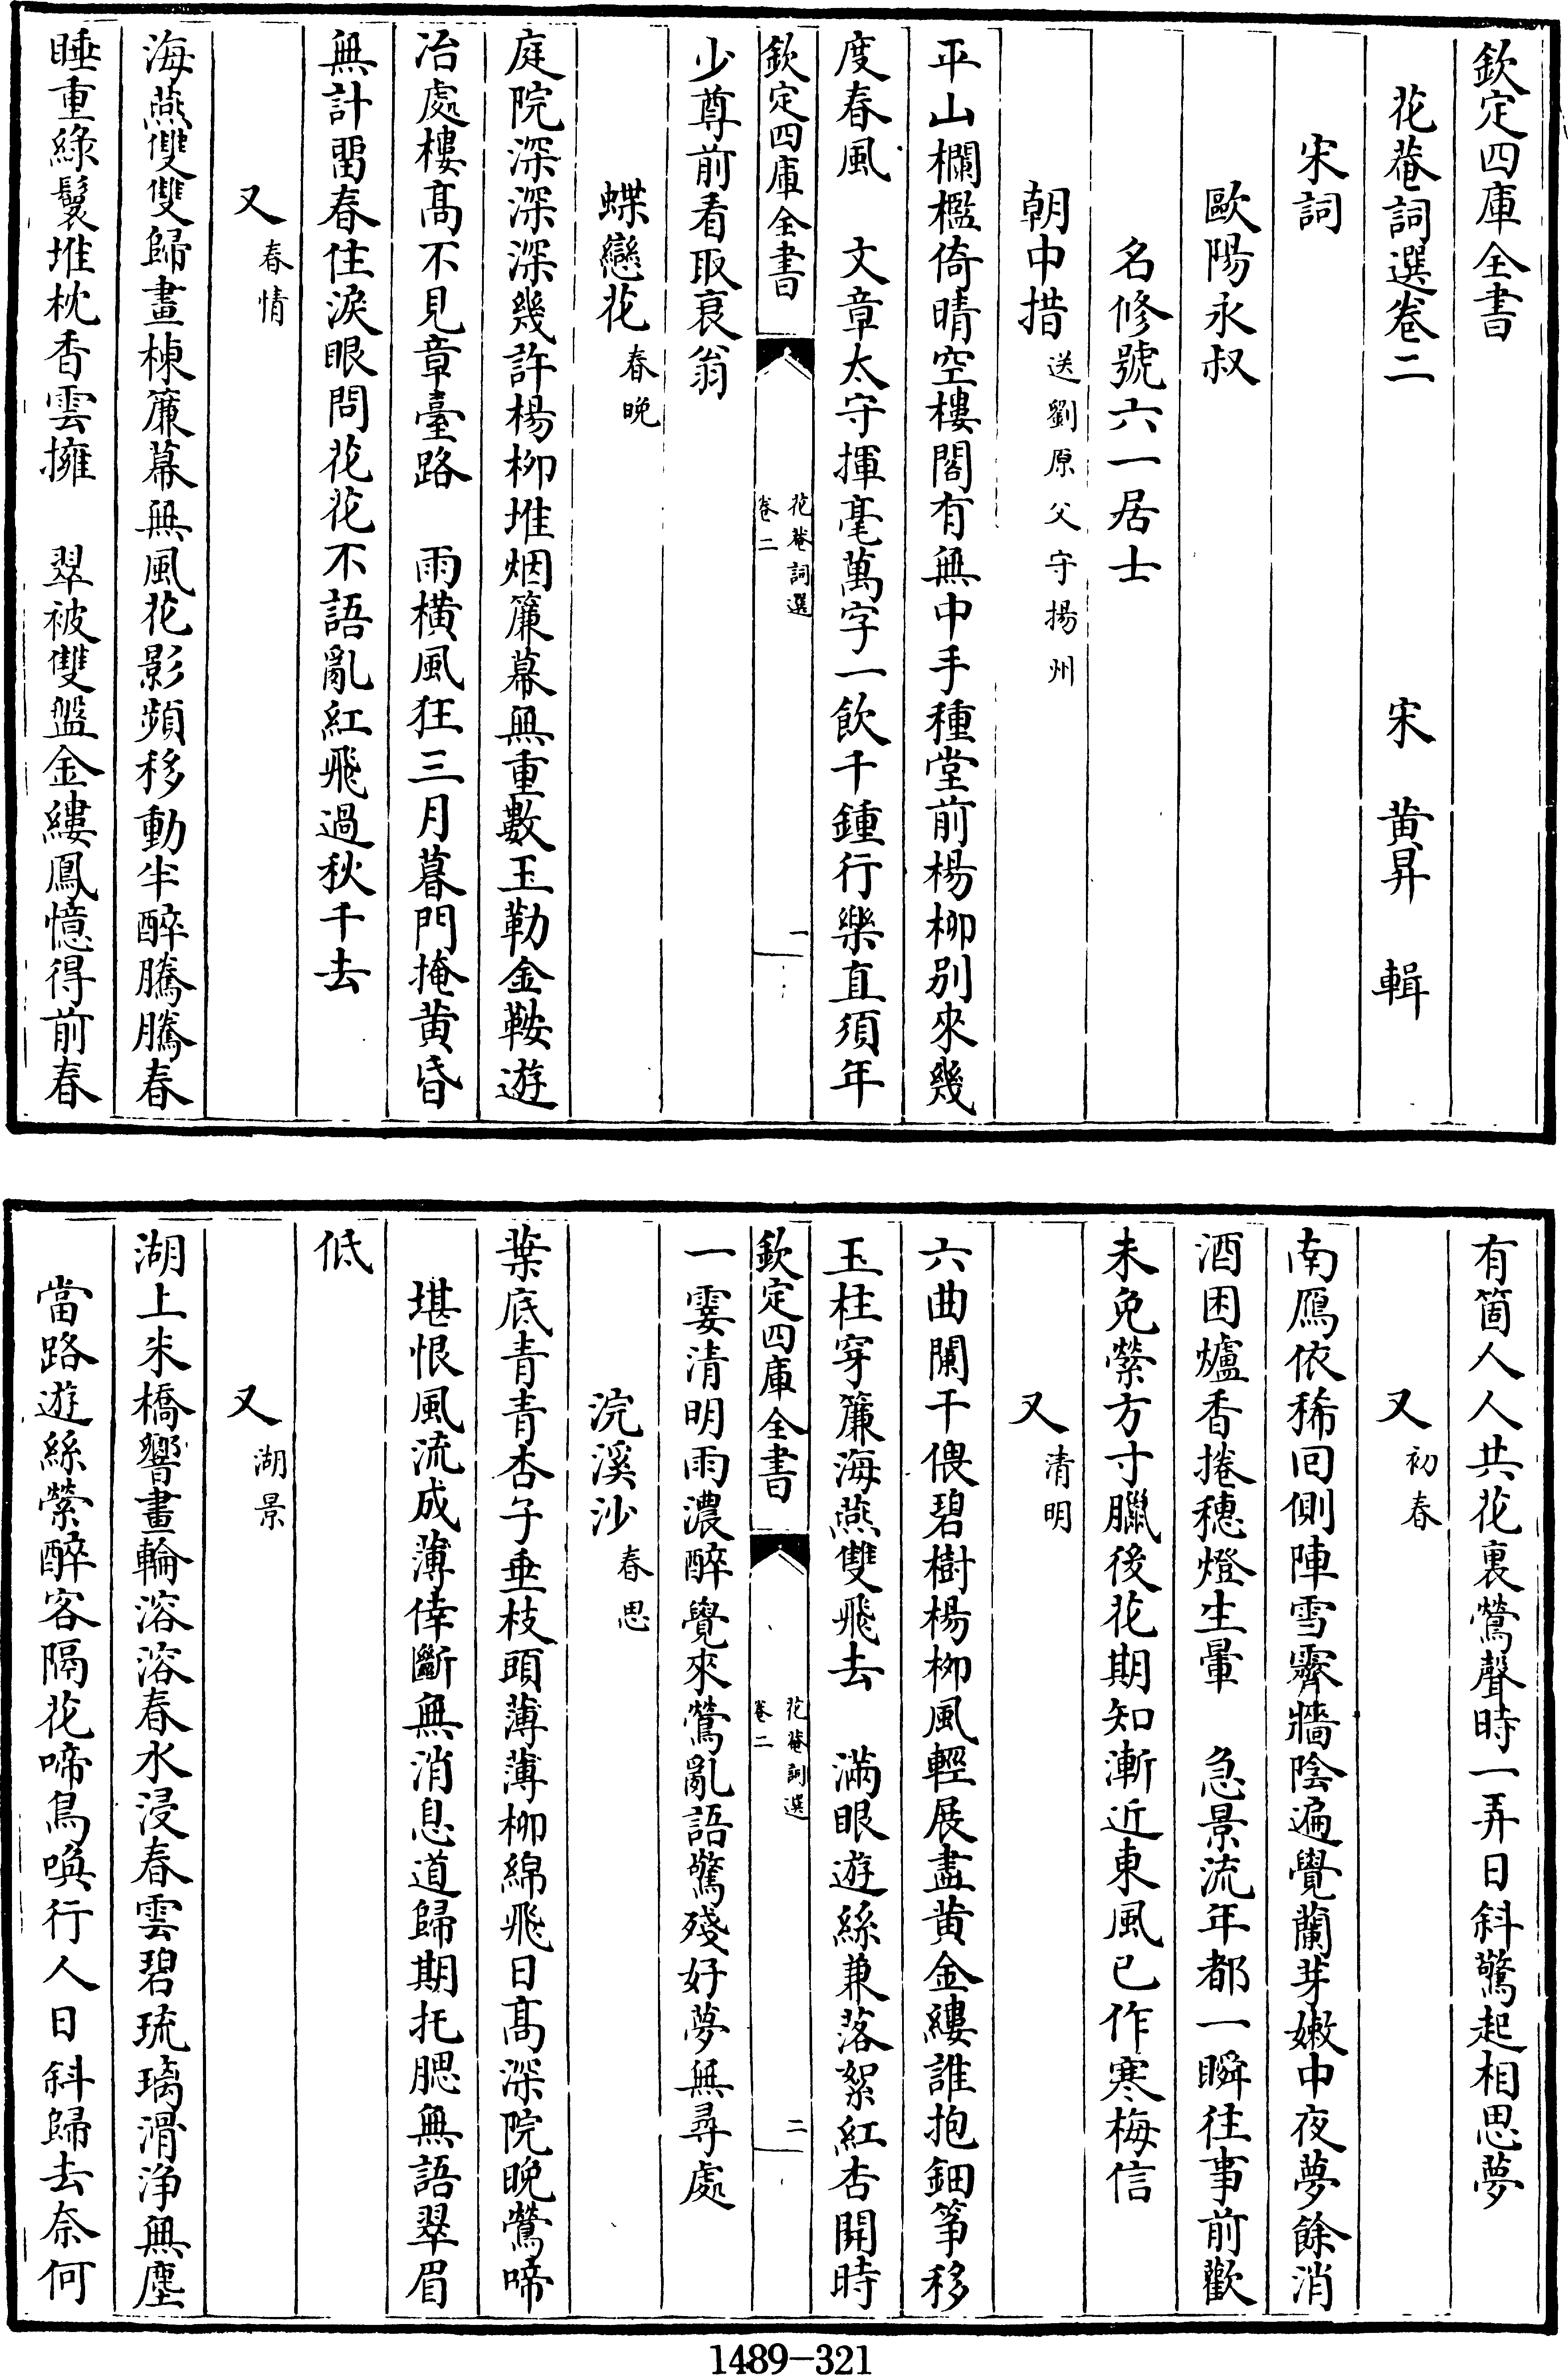 欽定四庫全書
花菴詞選卷二　宋　黄昇　輯
宋詞
歐陽永叔
名修號六一居士
朝中措送劉原父守揚州
平山欄檻倚晴空樓閣有無中手種堂前楊柳别來幾
度春風　文章太守揮毫萬字一飲千鍾行樂直須年
欽定四庫全書　花菴詞選卷二　一
少尊前看取衰翁
蝶戀花春晚
庭院深深深幾許楊柳堆烟簾幕無重數玉勒金鞍遊
冶處樓髙不見章臺路　雨橫風狂三月暮門掩黄昏
無計留春住淚眼問花花不語亂紅飛過秋千去
又春情
海燕雙雙歸畫棟簾幕無風花影頻移動半醉騰騰春
睡重緑鬟堆枕香雲擁　翠被雙盤金縷鳳憶得前春
有箇人人共花裏鶯聲時一弄日斜驚起相思夢
又初春
南鴈依稀回側陣雪霽牆陰遍覺蘭芽嫩中夜夢餘消
酒困爐香捲穗燈生暈　急景流年都一瞬往事前歡
未免縈方寸臘後花期知漸近東風已作寒梅信
又清明
六曲闌干偎碧樹楊柳風輕展盡黄金縷誰抱鈿筝移
玉柱穿簾海燕雙飛去　滿眼遊絲兼落絮紅杏開時
欽定四庫全書　花菴詞選卷二　二
一霎清明雨濃醉覺來鶯亂語驚殘好夢無尋處
浣溪沙春思
葉底青青杏子垂枝頭薄薄柳綿飛日髙深院晚鶯啼
堪恨風流成薄倖斷無消息道歸期托腮無語翠眉
低
又湖景
湖上朱橋響畫輪溶溶春水浸春雲碧琉璃滑浄無塵
當路遊絲縈醉客隔花啼鳥喚行人日斜歸去奈何
1489-321